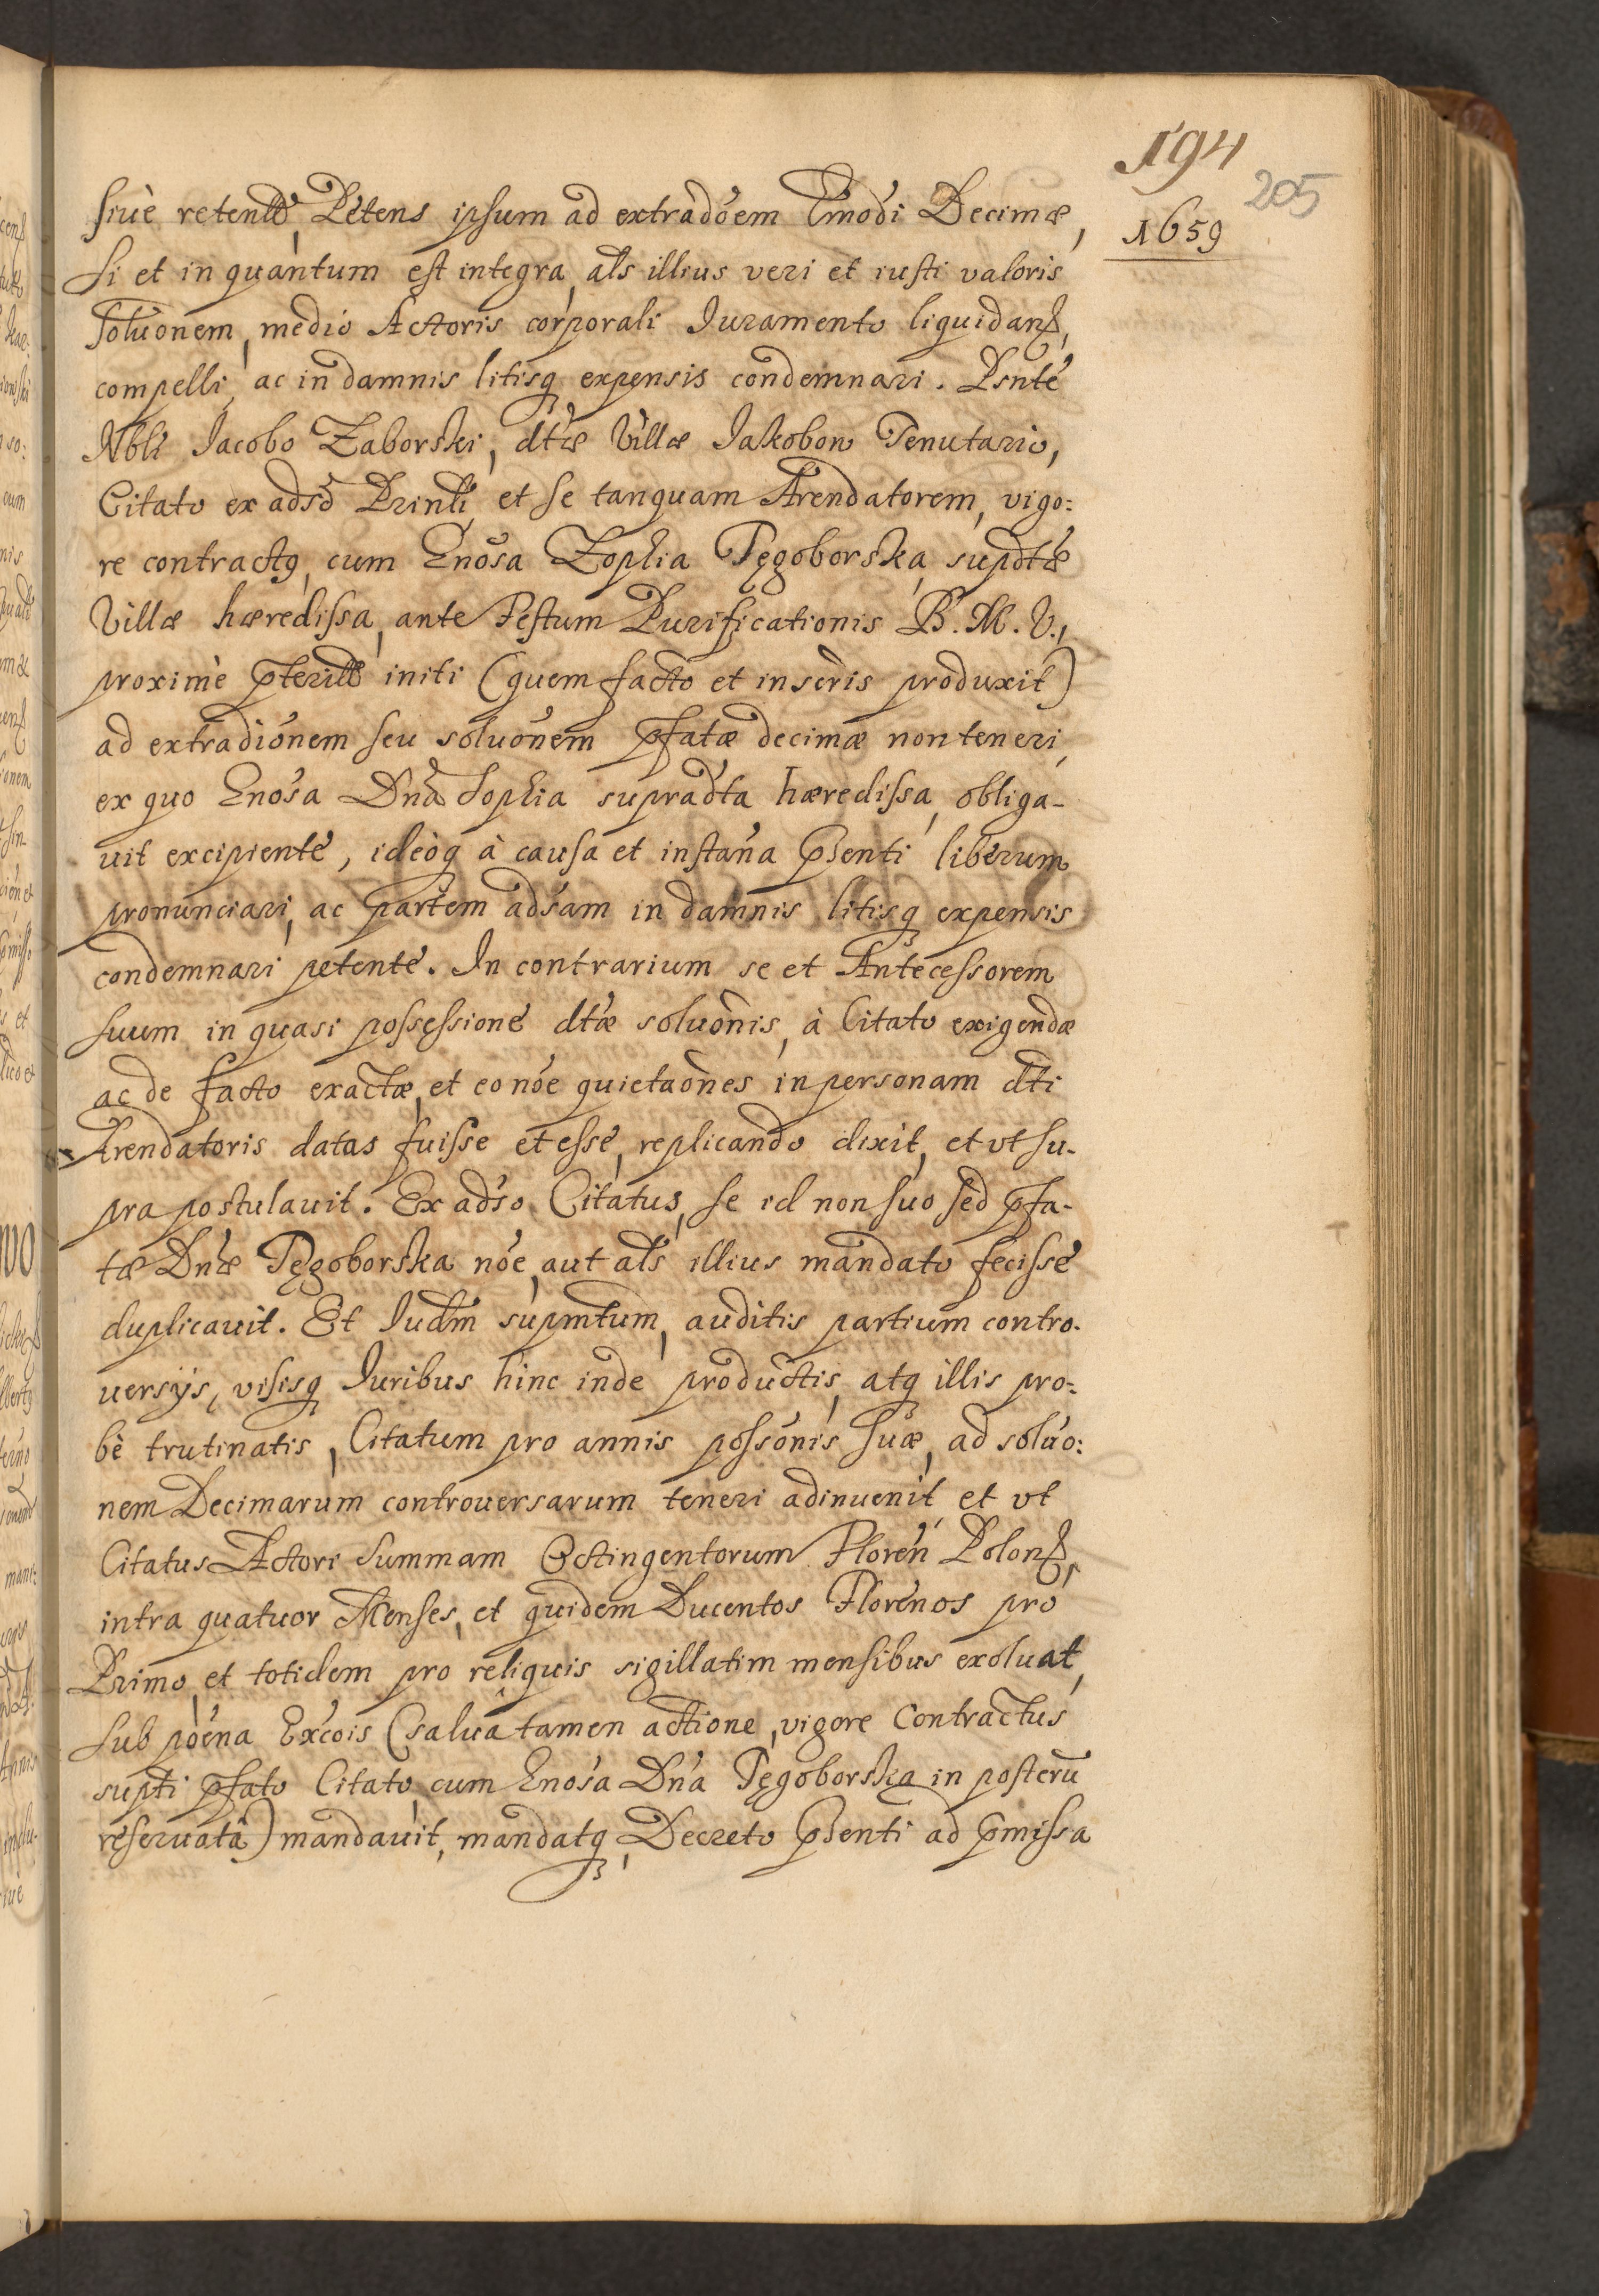 194
205
1659
siuè retentæ, Petens ipsum ad extradōem hmōdi Decimæ,
si et in quantum est integra, als illius veri et iusti valoris
soluōnem, medio Actoris corporali Iuramento liquidanß,
compelli, ac in damnis litisq expensis condemnari. Pn̄te
Nbli Iacobo Zaborski, dtæ Villæ Iakobow Tenutario,
Citato ex adsō Prinli, et se tanquam Arendatorem, vigo:
re contractq, cum Gnōsa Zophia Pęgoborska, supdtæ
Villæ hæredissa, ante Festum Purificationis B. M. V.,
proximè pteritæ initi (quem facto et in scris produxit)
ad extradiōnem seu soluōnem pfatæ decimæ non teneri,
ex quo Gnōsa Dnā Sophia supradta hæredissa, obliga-
uit excipiente, ideòq à causa et instāna pn̄ti liberum
pronunciari, ac partem adsam in damnis litisq expensis
condemnari petente. In contrarium se et Antecessorem
suum in quasi possessione dtæ soluōnis, à Citato exigendæ
ac de facto exactæ, et eo nōe quietaōnes in personam dti
Arendatoris datas fuisse et esse, replicando dixit, et vt su-
pra postulauit. Ex adso Citatus, se id non suo sed pfa-
tæ Dnæ Pęgoborska nōe, aut als illius mandato fecisse
duplicauit. Et Iudm supmtum, auditis partium contro-
uersijs, visisq Iuribus hinc inde productis, atq illis pro:
bè trutinatis, Citatum pro annis possōnis suæ, ad soluo:
nem Decimarum controuersarum teneri adinuenit, et vt
Citatus Actori summam Octingentorum Floren̄ Polonß,
intra quatuor Menses, et quidem Ducentos Florenos pro
Primo, et totidem pro reliquis sigillatim mensibus exoluat,
sub pœna Excōis (saluâ tamen actione, vigore Contractus
supti pfato Citato, cum Gnōsa Dnā Pęgoborska in posterū
reseruatâ) mandauit, mandatq, Decreto pn̄ti ad pmissa